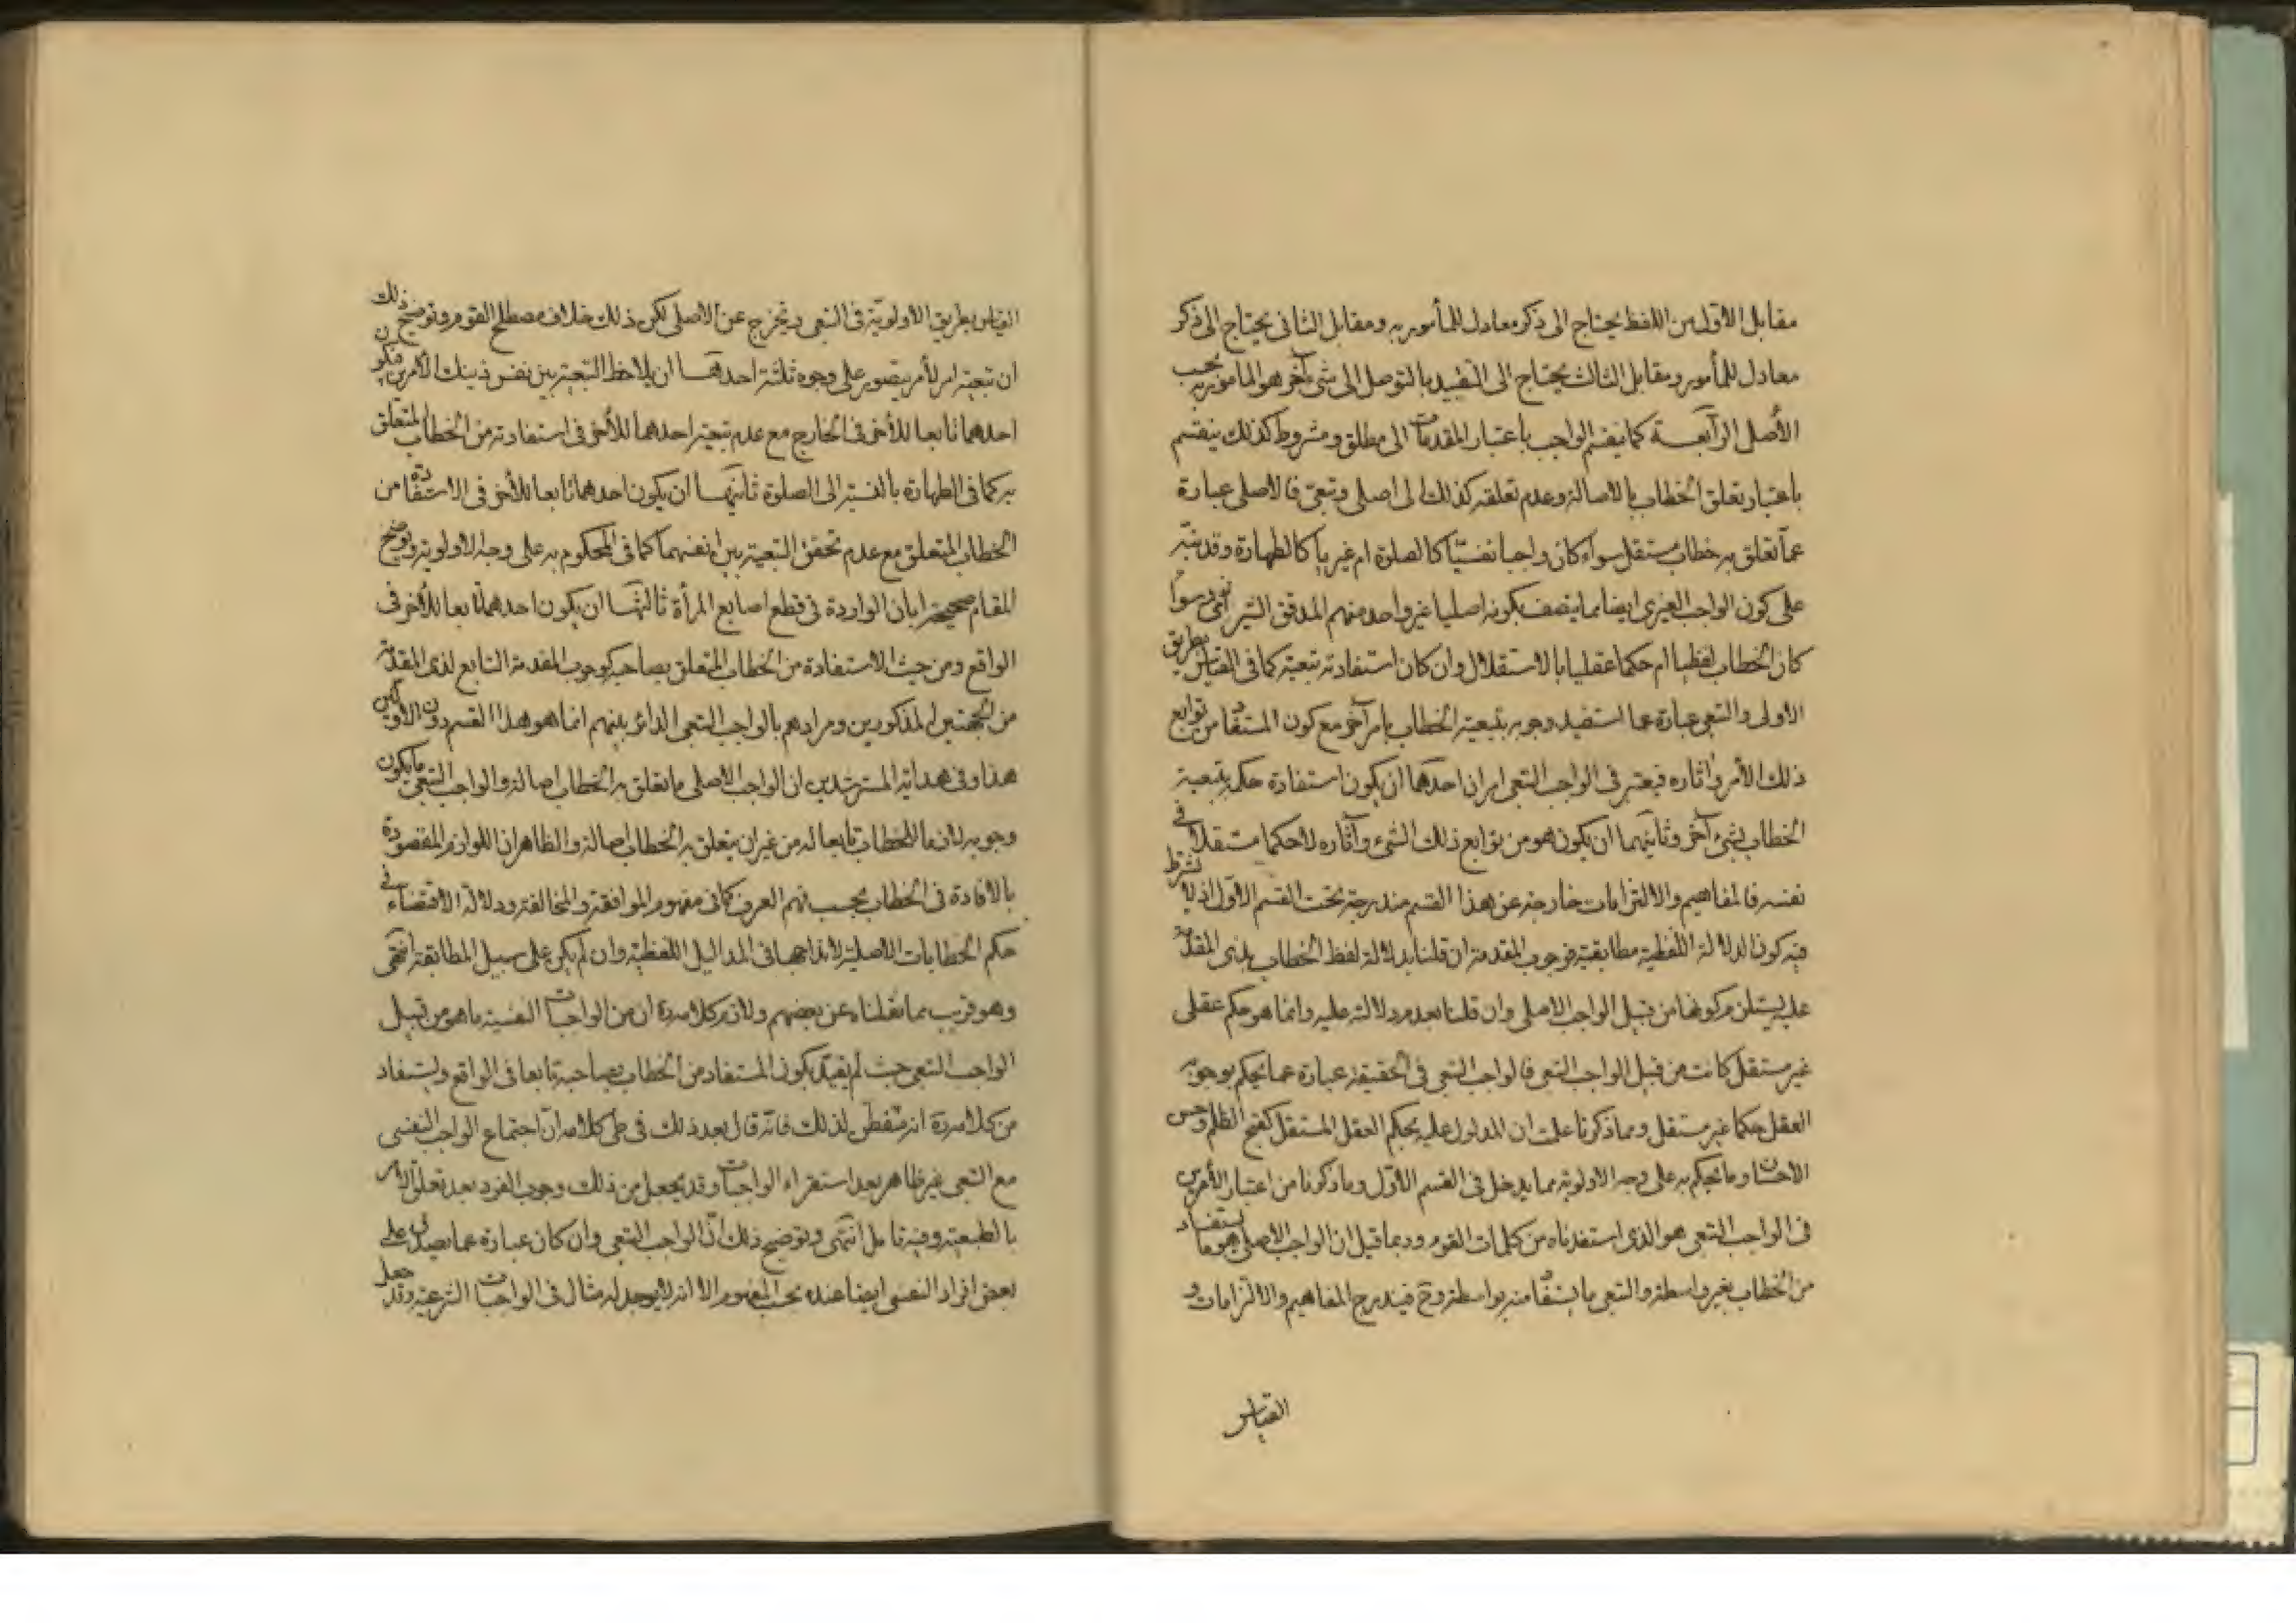 مقابل الاول من اللفظ يحتاج الى ذكر معادل للمأمور به ومقابل الثاني يحتاج الى ذكر
معادل للمأمور ومقابل الثالث يحتاج الى التقييد بالتوصل الى شئ آخر هو المامور به بحسب
الأصل الرآبعة كما ينقسم الواجب باعتبار المقدمات الى مطلق ومشروط كذلك ينقسم
باعتبار تعلق الخطاب بالاصالة وعدم تعلقه كذلك الى اصلى وتبعى فالاصلى عبارة
عما تعلق به خطاب مستقل سواء كان واجبا نفسيّا كالصلوة ام غيريا كالطهارة وقد نبّه
على كون الواجب الغيرى ايضا مما يتصف بكونه اصليا غير واحد منهم المدقق الشيروانى سوآء
كان الخطاب لفظيا ام حكما عقليا بالاستقلال وان كان استفادته تبعية كما فى القياس بطريق
الاولى والتبعى عبارة عما استفيد وجوبه بتبعية الخطاب بامر آخر مع كون المستفاد من توابع
ذلك الأمر واثاره فيعتبر فى الواجب التبعى امران احدهما ان يكون استفادة حكمه بتبعية
الخطاب بشئ آخر وثانيهما ان يكون هو من توابع ذلك الشئ وآثاره لا حكما مستقلا فى
نفسه فالمفاهيم والالتزامات خارجة عن هذا القسم مندرجة تحت القسم الاول اذ لا يشترط
فيه كون الدلالة اللفظية مطابقية فوجوب المقدمة ان قلنا بدلالة لفظ الخطاب بذى المقدمة
عليه يستلزم كونها من قبيل الواجب الاصلى وان قلنا بعدم دلالته عليه وانما هو حكم عقلى
غير مستقل كانت من قبيل الواجب التبعى فالواجب التبعى فى الحقيقة عبارة عما يحكم بوجوبه
العقل حكما غير مستقل ومما ذكرنا علمت ان المدلول عليه بحكم العقل المستقل كقبح الظلم وحسن
الاحسان وما يحكم به على وجه الاولوية مما يدخل فى القسم الاول وما ذكرنا من اعتبار الأمرين
فى الواجب التبعى هو الذى استفدناه من كلمات القوم وربما قيل ان الواجب الاصلى هو ما يستفاد
من الخطاب بغير واسطة والتبعى ما يستفاد منه بواسطة وح فيندرج المفاهيم والالتزامات و
القياس
القياس بطريق الاولويّة فى التبعى ويخرج عن الاصلى لكن ذلك خلاف مصطلح القوم وتوضيح ذلك
ان تبعية امر لأمر يتصور على وجوه ثلثة احدهما ان يلاحظ التبعية بين نفس ذينك الأمرين فيكون
احدهما تابعا للأخر فى الخارج مع عدم تبعية احدهما للأخر فى استفادته من الخطاب المتعلق
به كما فى الطهارة بالنسبة الى الصلوة ثانيهما ان يكون احدهما تابعا للأخر فى الاستفادة من
الخطاب المتعلق مع عدم تحقق التبعية بين انفسهما كما فى المحكوم به على وجه الاولوية وتوضح
المقام صحيحة ابان الواردة فى قطع اصابع المرأة ثالثها ان يكون احدهما تابعا للأخر فى
الواقع ومن حيث الاستفادة من الخطاب المتعلق بصاحبه كوجوب المقدمة التابع لذى المقدمة
من الجهتين المذكورين ومرادهم بالواجب التبعى الدائر بينهم انما هو هذا القسم دون الاولين
هذا وفى هداية المسترشدين ان الواجب الاصلى ما تعلق به الخطاب اصالة والواجب التبعى ما يكون
وجوبه لازما للخطاب تابعا له من غير ان يتعلق به الخطاب اصالة والظاهر ان اللوازم المقصودة
بالافادة فى الخطاب بحسب فهم العرف كما فى مفهوم الموافقة والمخالفة ودلالة الاقتضاء فى
حكم الخطابات الاصلية لاندراجها فى المداليل اللفظية وان لم يكن على سبيل المطابقة انتهى
وهو قريب مما نقلناه عن بعضهم ولازم كلامه ره ان من الواجبات النفسية ما هو من قبيل
الواجب التبعى حيث لم يقيد بكون المستفاد من الخطاب بصاحبه تابعا فى الواقع ويستفاد
من كلامه ره انه متفطن لذلك فانه قال بعد ذلك فى طى كلامه ان اجتماع الواجب النفسى
مع التبعى غير ظاهر بعد استقراء الواجبات وقد يجعل من ذلك وجوب الفرد بعد تعلق الامر
بالطبيعة وفيه تامل انتهى وتوضيح ذلك انّ الواجب التبعى وان كان عبارة عما يصدق على
بعض افراد النفسى ايضا عنده بحسب المفهوم الا انه لا يوجد له مثال فى الواجبات الشرعية وقد جعل